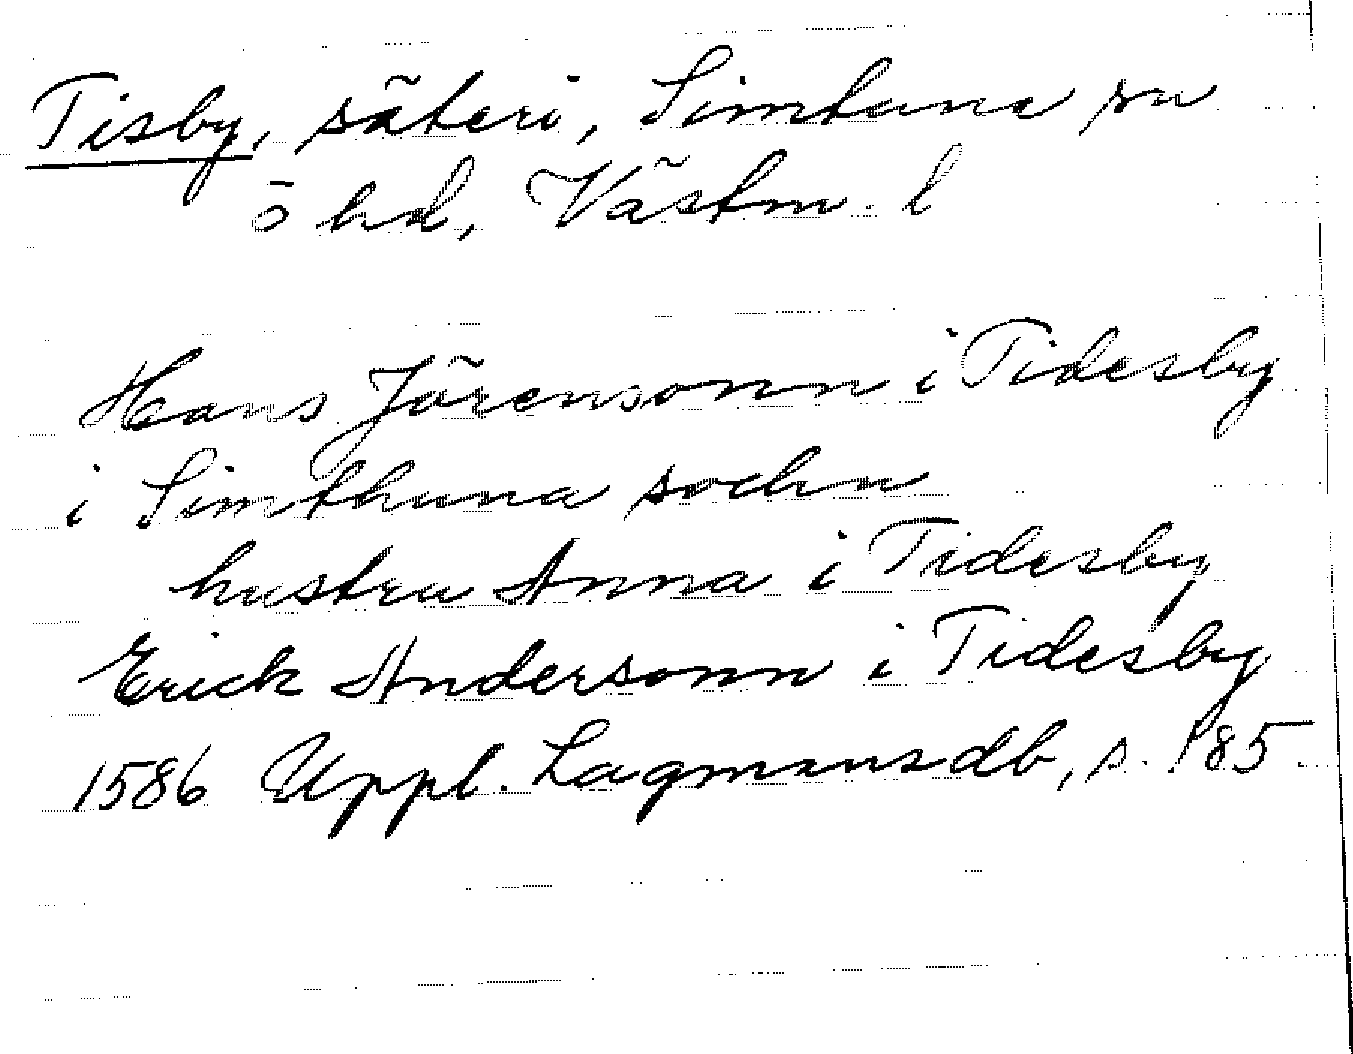 Tisby, säteri, Simtuna sn
ö hd, Västm. l
Hans Jörensonn i Tidesby
i Simthuna sochn
hustru Anna i Tidesby
Erick Andersonn i Tidesby
1586 Uppl. Lagmansdb, s. 185